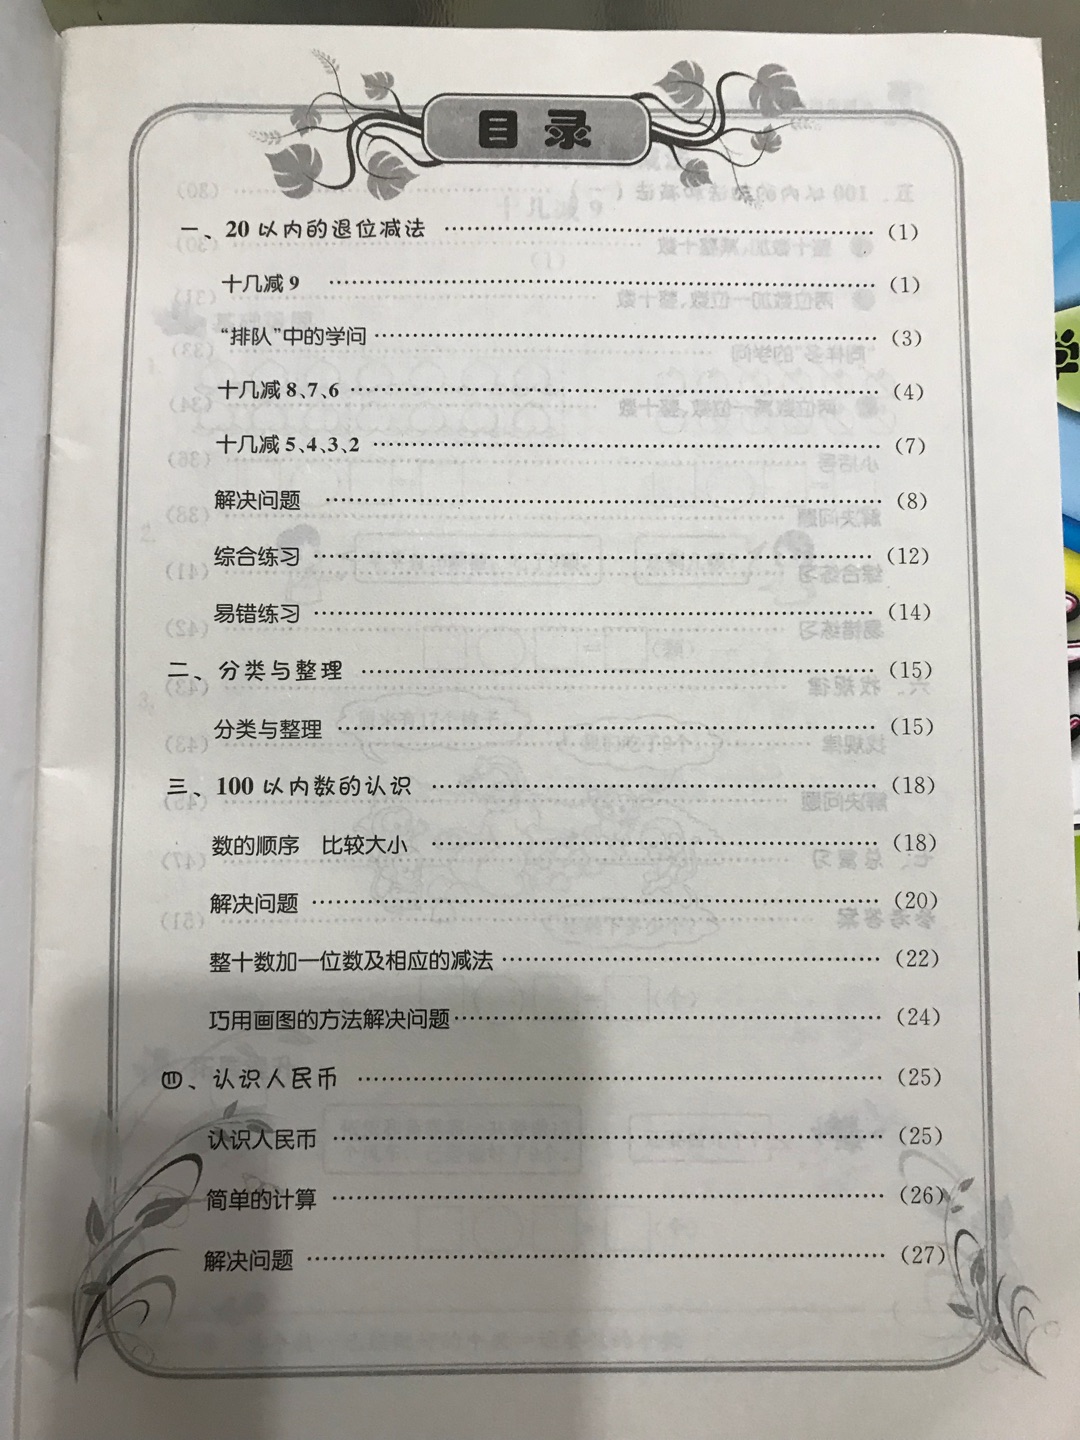 目录
一、20以内的退位减法 ………………………… (1)
十几减9 ………………………… (1)
“排队”中的学问 ………………………… (3)
十几减8、7、6 ………………………… (4)
十几减5、4、3、2 ………………………… (7)
解决问题 ………………………… (8)
综合练习 ………………………… (12)
易错练习 ………………………… (14)
二、分类与整理 ………………………… (15)
分类与整理 ………………………… (15)
三、100以内数的认识 ………………………… (18)
数的顺序 比较大小 ………………………… (18)
解决问题 ………………………… (20)
整十数加一位数及相应的减法 ………………………… (22)
巧用画图的方法解决问题 ………………………… (24)
四、认识人民币 ………………………… (25)
认识人民币 ………………………… (25)
简单的计算 ………………………… (26)
解决问题 ………………………… (27)